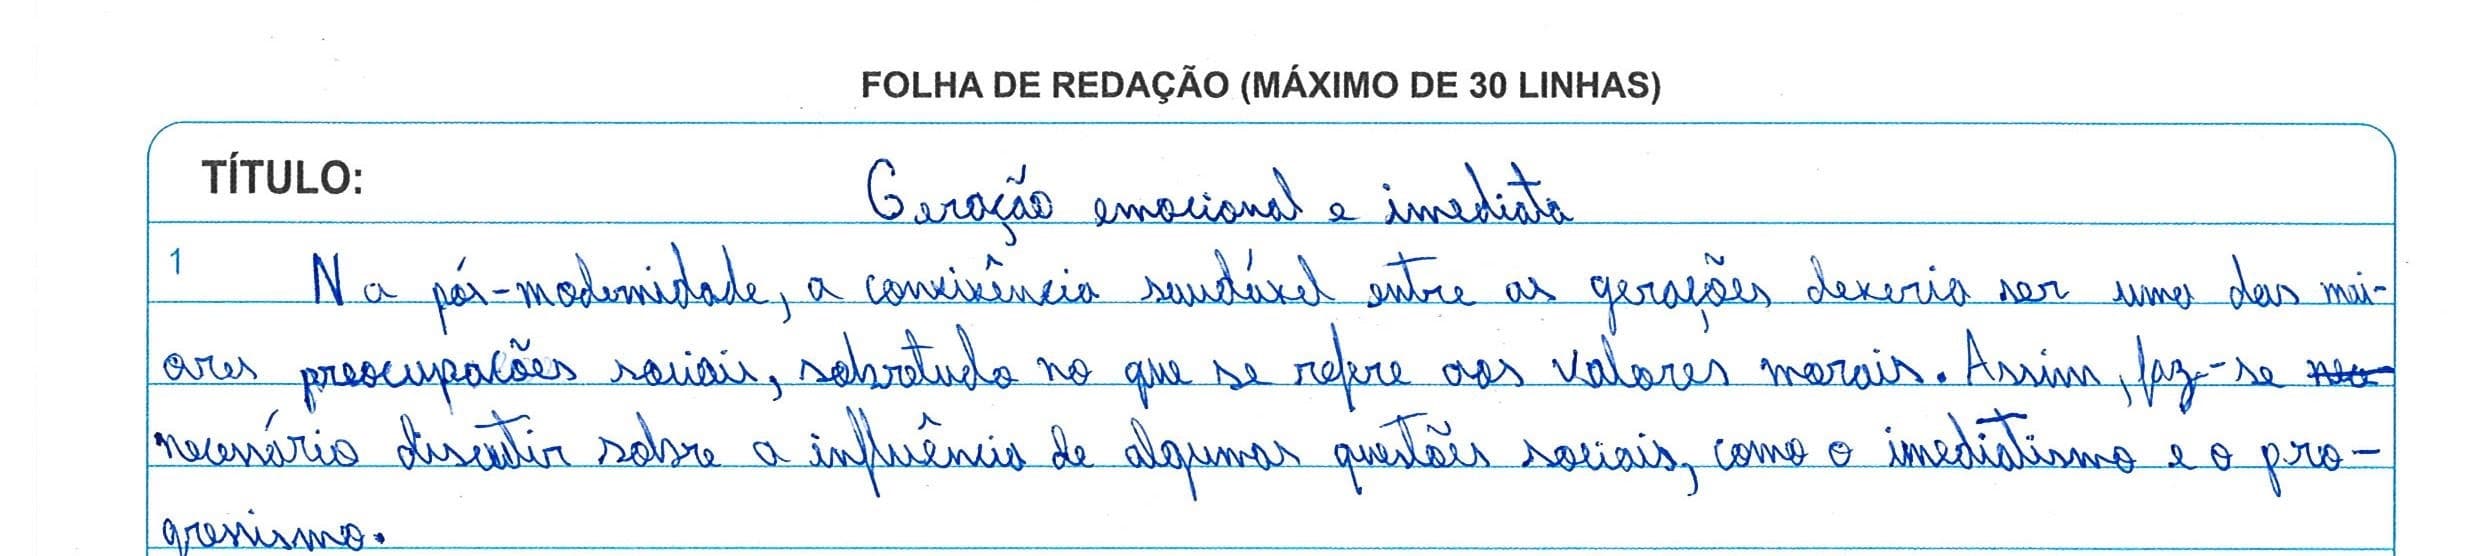 FOLHA DE REDAÇÃO (MÁXIMO DE 30 LINHAS)
TÍTULO: Geração emocional e imediata
1 Na pós-modernidade, a convivência saudável entre as gerações deveria ser uma das mai-
ores preocupações sociais, sobretudo no que se refere aos valores morais. Assim, faz-se
necessário discutir sobre a influência de algumas questões sociais, como o imediatismo e o pro-
gressismo.